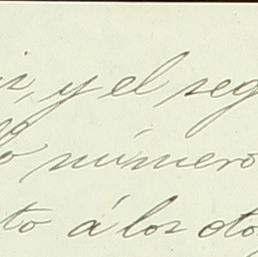 y el reg
número
to á los oto